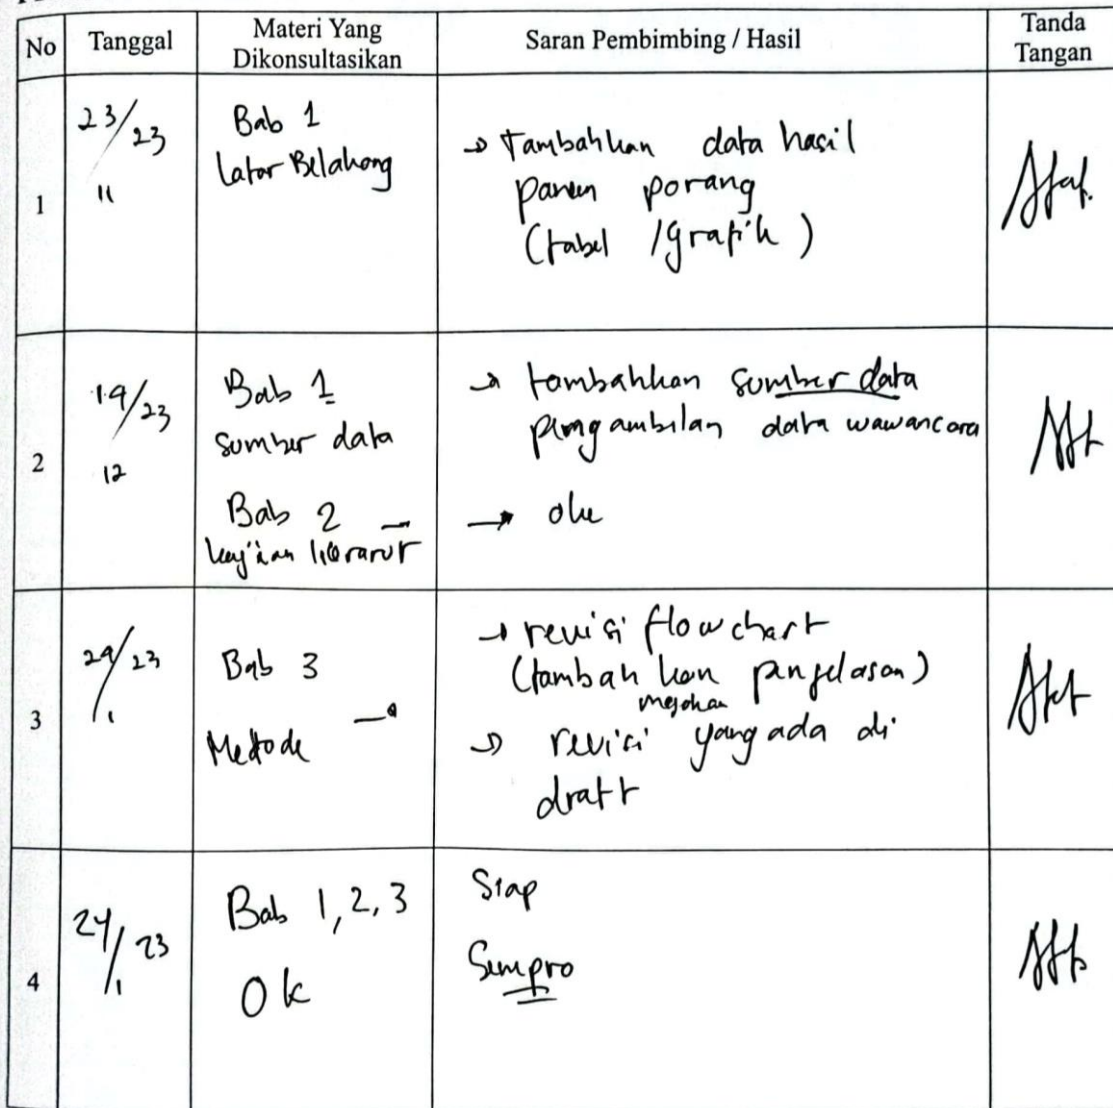 No
Tanggal
Materi Yang
Dikonsultasikan
Saran Pembimbing / Hasil
Tanda
Tangan
1
23/23
11
Bab 1
Latar Belakang
→ Tambahkan data hasil
panen porang
(tabel / grafik)
2
19/23
12
Bab 1
sumber data
Bab 2 →
kajian literatur
→ tambahkan sumber data
pengambilan data wawancara
→ oke
3
/23
1
Bab 3
Metode →
→ revisi flowchart
(tambahkan penjelasan)
→ revisi yang ada di
draft
4
24/23
1
Bab 1, 2, 3
Ok
Siap
Sempro